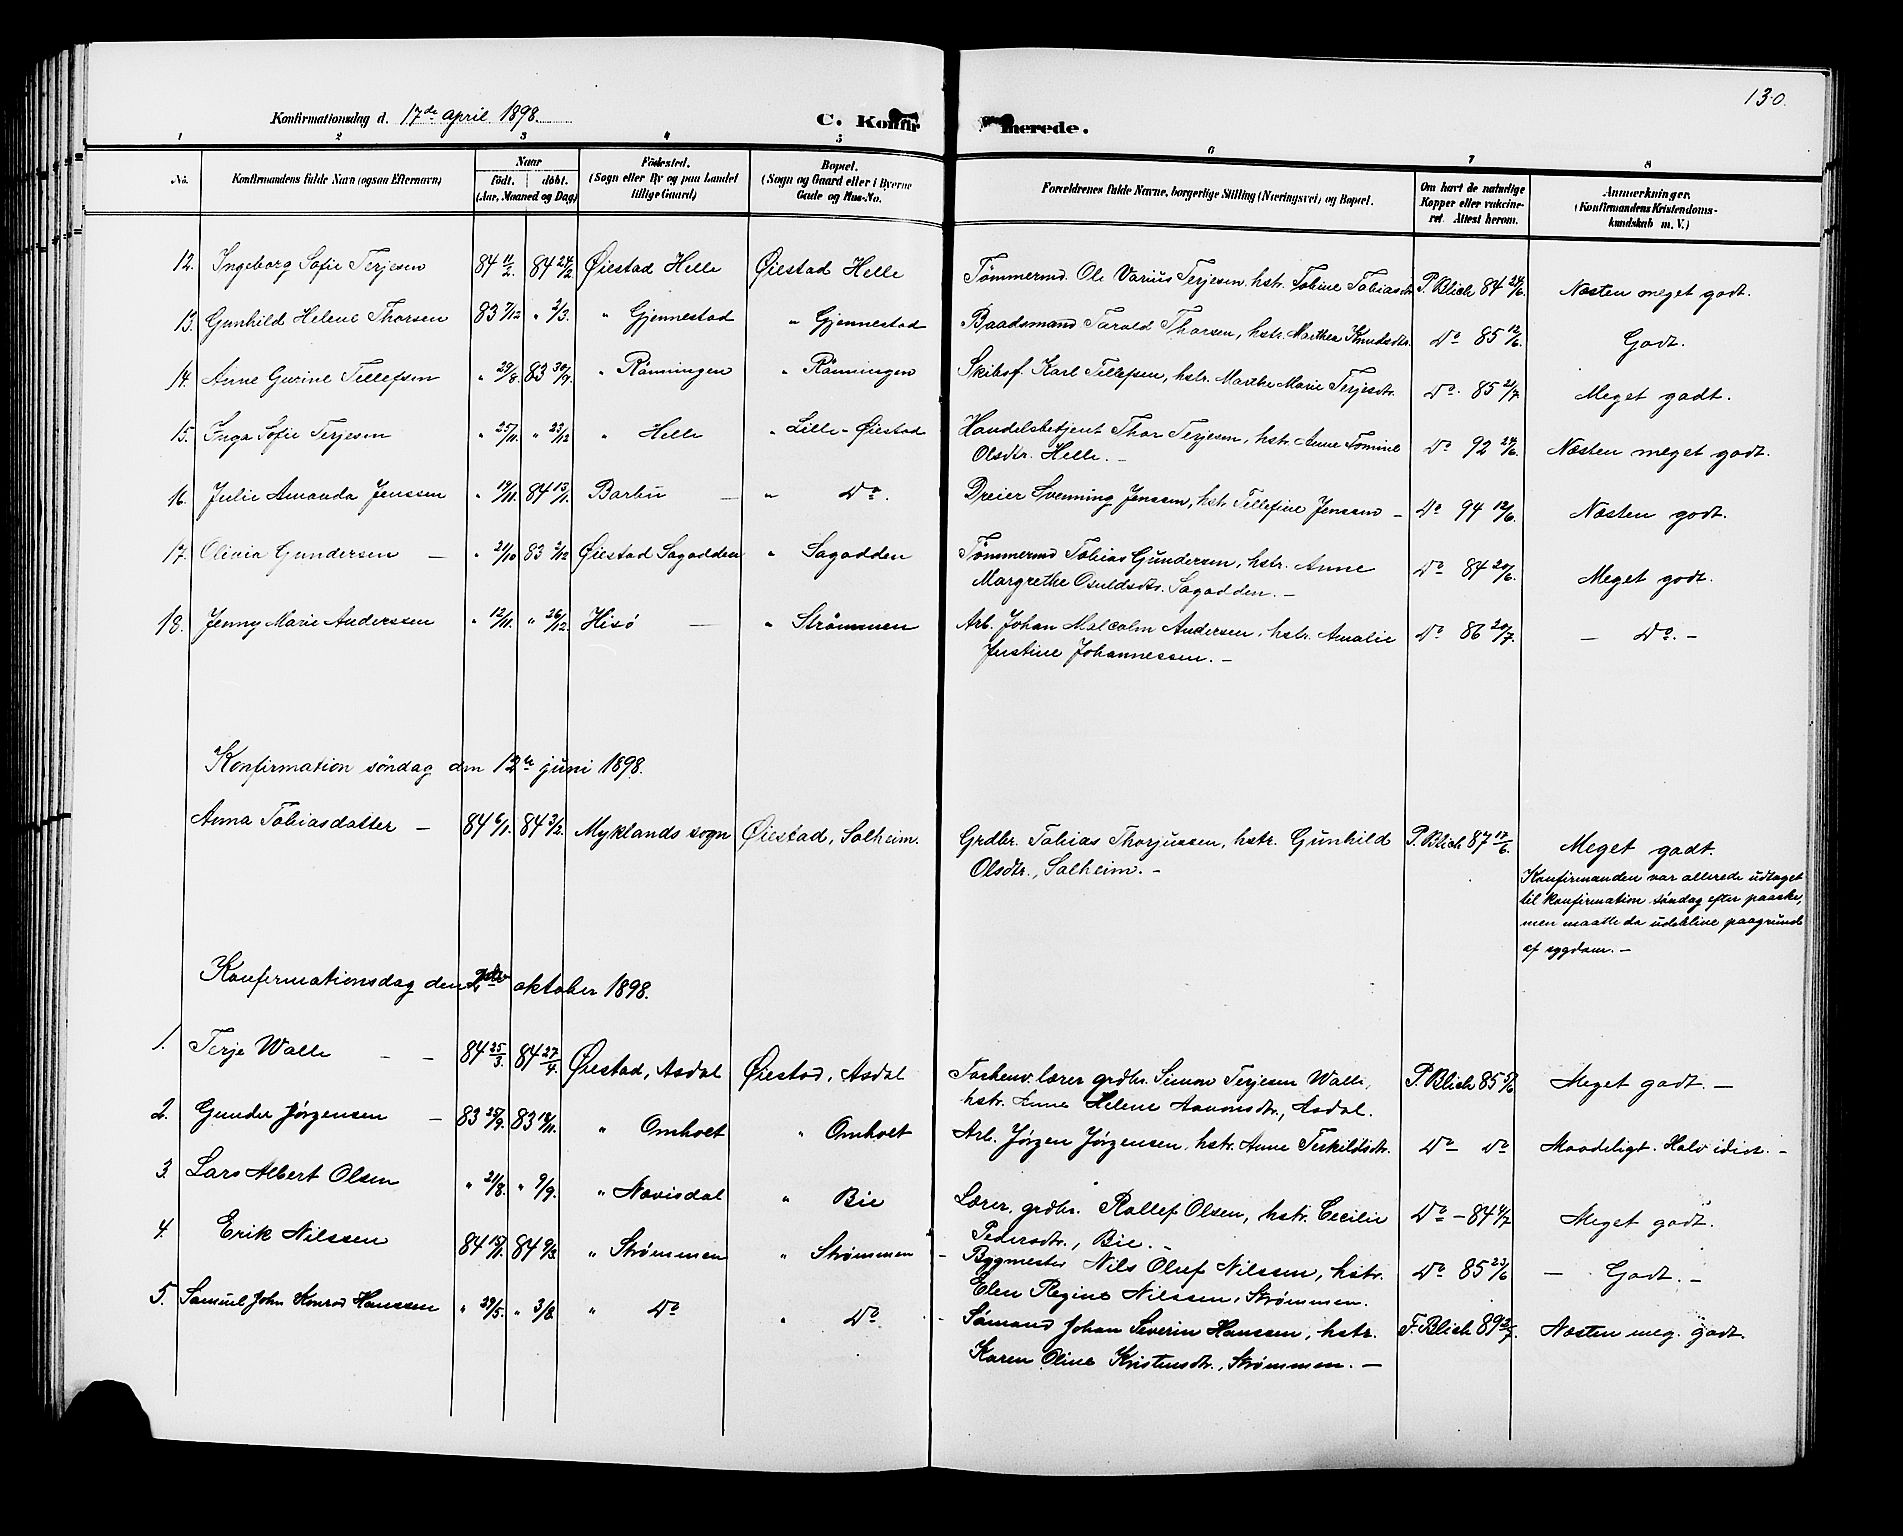 130.
Konfirmationsdag d. 17de april 1898.
C. Konfirmerede.
1 2 3 4 5 6 7 8
No. Konfirmandens fulde Navn (ogsaa Efternavn)
Naar født. døbt. (Aar, Maaned og Dag)
Fødested. (Sogn eller By og paa Landet tillige Gaard)
Bopæl. (Sogn og Gaard eller i Byerne Gade og Hus-No.
Forældrenes fulde Navne, borgerlige Stilling (Næringsvei) og Bopæl.
Om havt de naturlige Kopper eller vakcineret. Attest herom.
Anmærkninger. (Konfirmandens Kristendomskundskab m. V.)
12. Ingeborg Sofie Terjesen 84 11/2. 84 24/2 Øiestad Helle Øiestad Helle Tømmermd. Ole Varius Terjesen, hstr. Tobine Tobiasdtr P. Blich 84 24/6. Næsten meget godt.
13. Gunhild Helene Thorsen 83 7/12 " 2/3. " Gjennestad " Gjennestad Baadsmand Tarald Thorsen, hstr. Marthea Knudsdtr. Do 85 12/6. Godt.
14. Anne Gurine Tellefsen " 29/8. 83 30/9. " Rønningen " Rønningen Skibsf. Karl Tellefsen, hstr. Marthe Marie Terjesdtr. Do. 85 2/7. Meget godt.
15. Inga Sofie Terjesen " 25/11. " 23/12 " Helle " Lille-Øiestad Handelsbetjent Thor Terjesen, hstr. Anne Tomine
Olsdtr. Helle. – Do 92 24/6. Næsten meget godt.
16. Julie Amanda Jenssen " 19/11. 84 13/1. Barbu – " Do. Dreier Svenning Jenssen, hstr. Tellefine Jenssen – Do 94 12/6. Næsten godt.
17. Olivia Gundersen – " 21/10 83 2/12 Øiestad Sagodden " Sagodden Tømmermd Tobias Gundersen, hstr. Anne
Margrethe Osuldsdtr. Sagodden. – Do 84 20/6. Meget godt.
18. Jenny Marie Anderssen " 12/11. " 26/12. Hisø – " Strømmen Arb. Johan Malcolm Andersen, hstr. Amalie
Justine Johannessen. – Do 86 20/7. – Do. –
Konfirmation søndag den 12te juni 1898.
Anna Tobiasdatter – 84 6/1. 84 3/2. Myklands sogn Øiestad, Solheim. Grdbr. Tobias Thorjussen, hstr. Gunhild
Olsdtr., Solheim. – P. Blich 87 17/6. Meget godt.
Konfirmanden var allerede udtaget
til konfirmation søndag efter paaske,
men maatte da udeblive paagrund
af sygdom. –
Konfirmationsdag den 2den oktober 1898.
1. Terje Walle – – 84 25/3. 84 27/4. Øiestad, Asdal Øiestad, Asdal lærer grdbr. Simon Terjesen Walle,
hstr. Anne Helene Aavonsdtr., Asdal. P. Blich 85 5/6 Meget godt. –
2. Gunder Jørgensen – 83 25/9. 83 18/11. " Omholt " Omholt Arb. Jørgen Jørgensen, hstr. Anne Terkildsdtr. Do Do Maadeligt. Halv idiot. –
3. Lars Albert Olsen " 21/8. " 9/9. " Nævisdal " Bie Lærer, grdbr. Rollef Olsen, hstr. Cecilie
Pedersdtr., Bie. – Do – 84 4/7 Meget godt.
4. Erik Nilssen 84 18/1. 84 9/3. " Strømmen " Strømmen – Bygmester Nils Oluf Nilssen, hstr.
Elen Regine Nilssen, Strømmen. Do 85 23/6 – Godt. –
5. Samuel John Konrad Hanssen " 29/5. " 3/8. " Do " Do. – Sømand Johan Severin Hanssen, hstr.
Karen Oline Kristensdtr., Strømmen. – F. Blich 89 2/7. Næsten meg. godt.